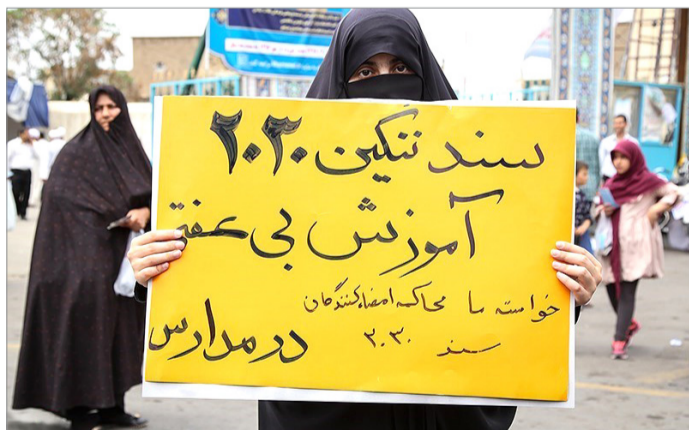 سند ننگین ۲۰۳۰
آموزش بی عفتی
خواسته ما محاکمه امضاءکنندگان
سند ۲۰۳۰
در مدارس